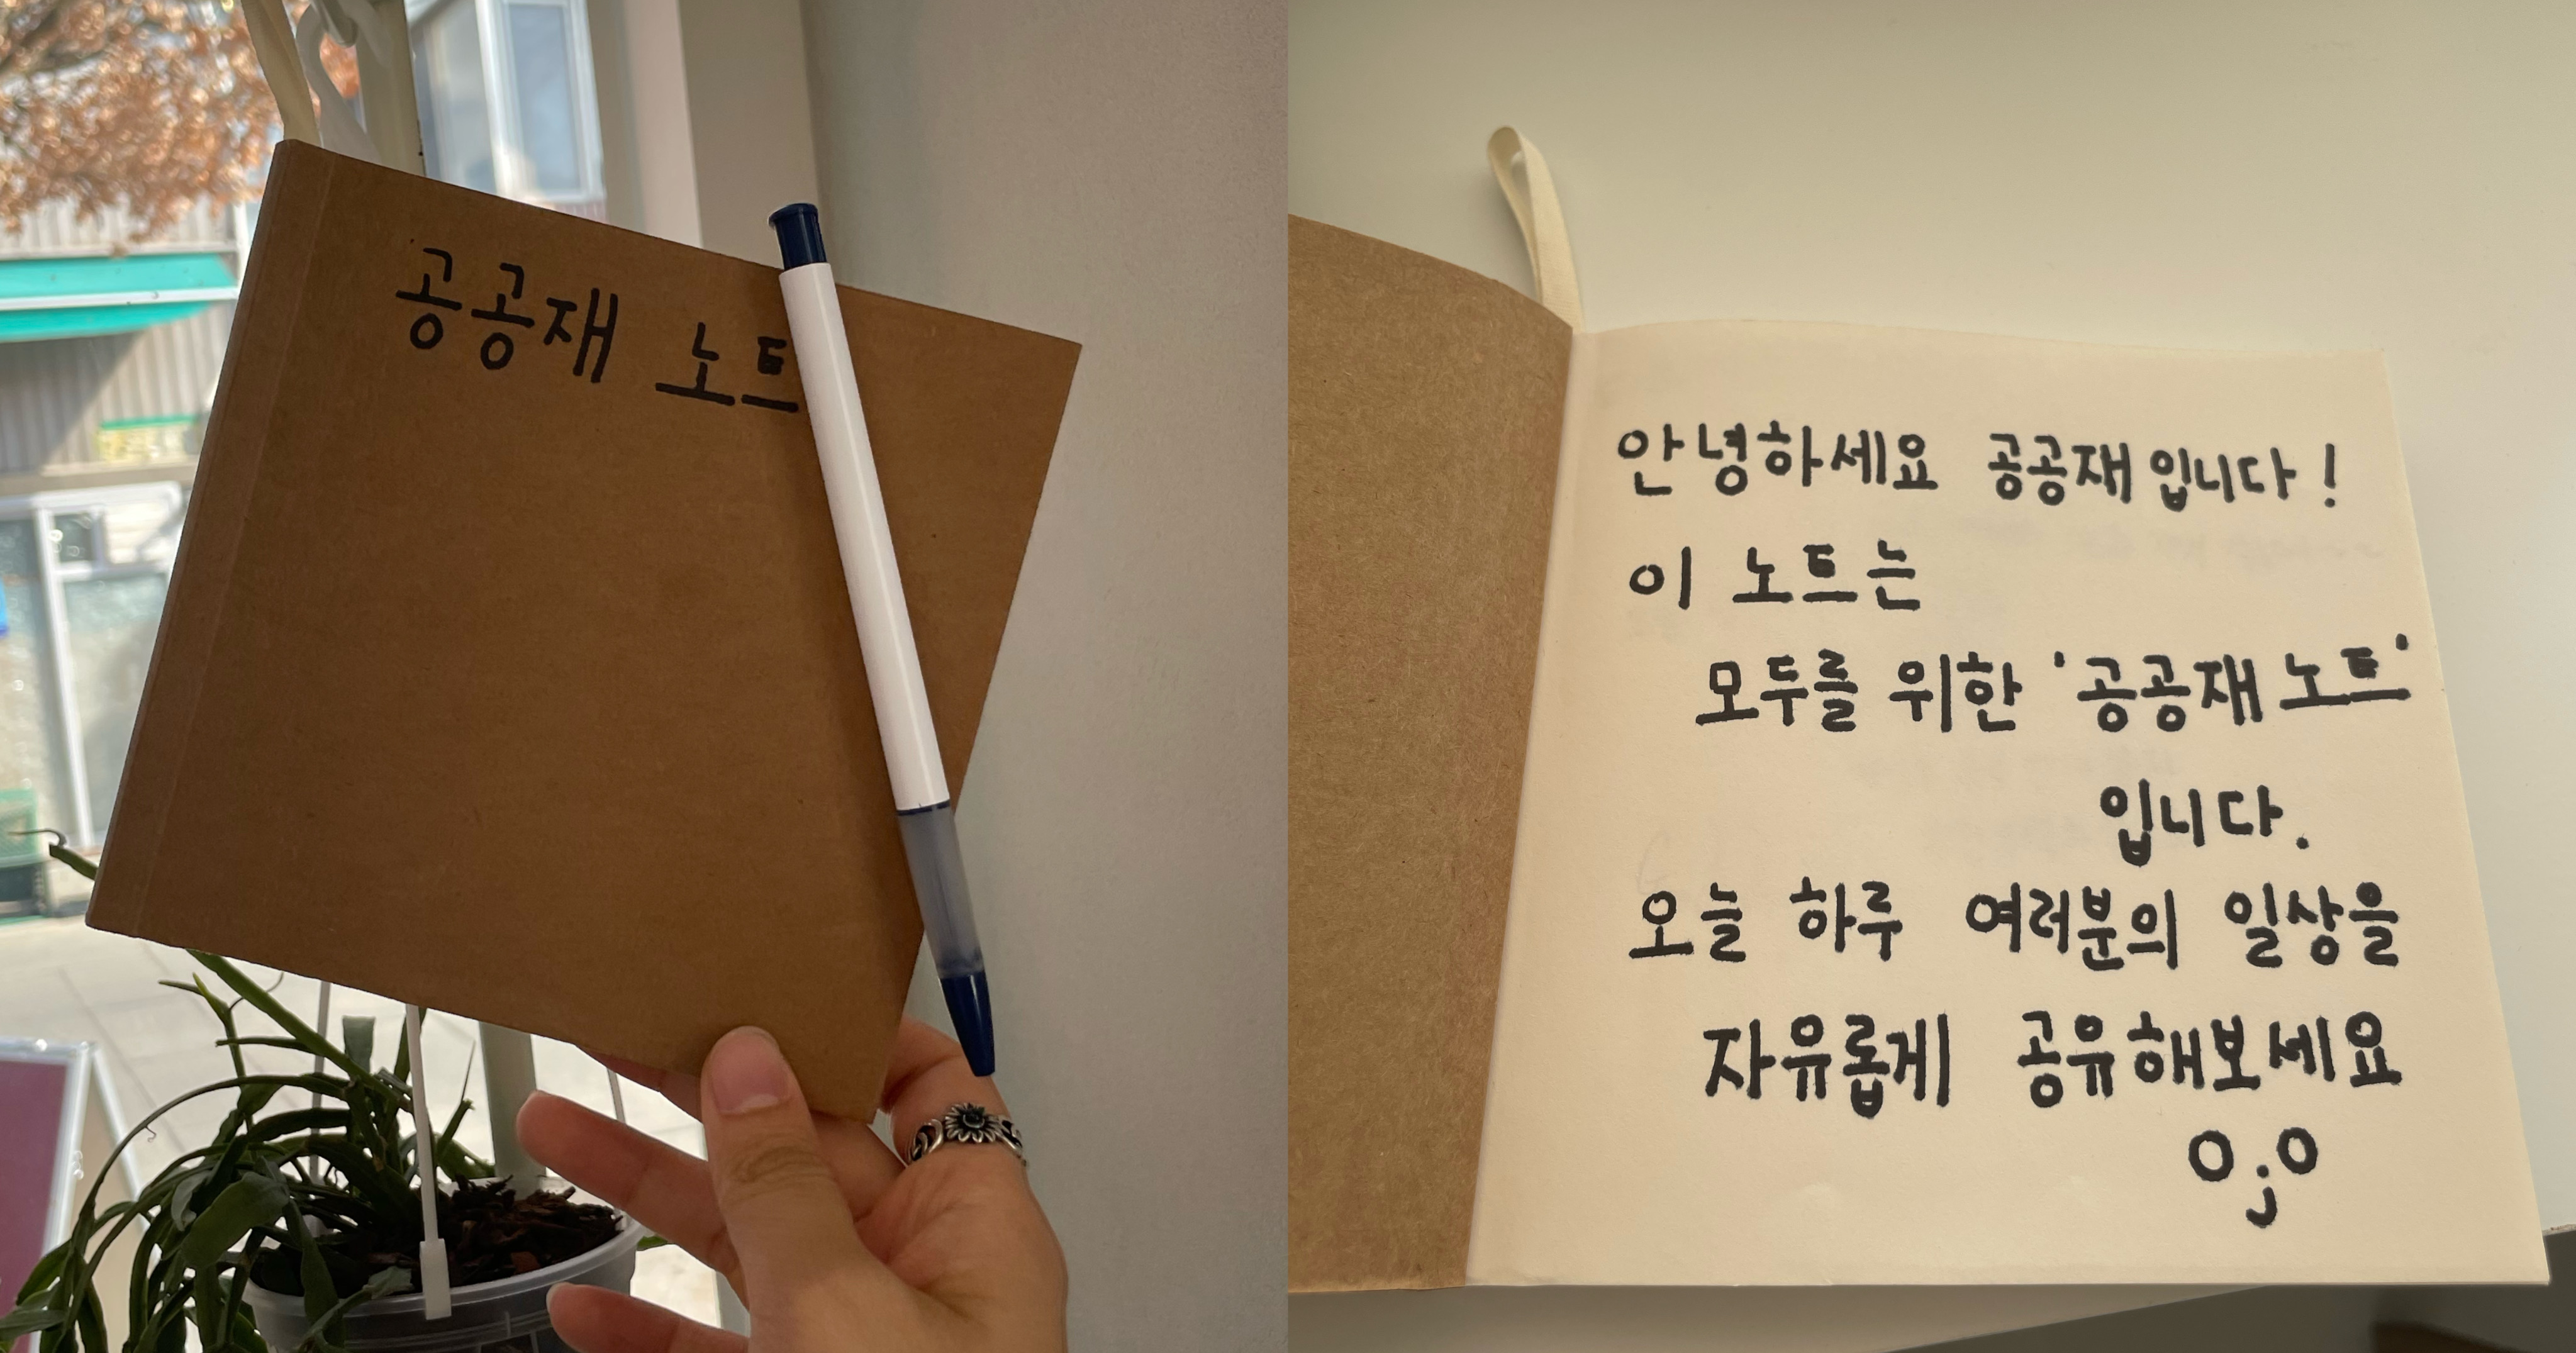 공공재 노트
안녕하세요 공공재입니다!
이 노트는
모두를 위한 '공공재 노트'
입니다.
오늘 하루 여러분의 일상을
자유롭게 공유해보세요